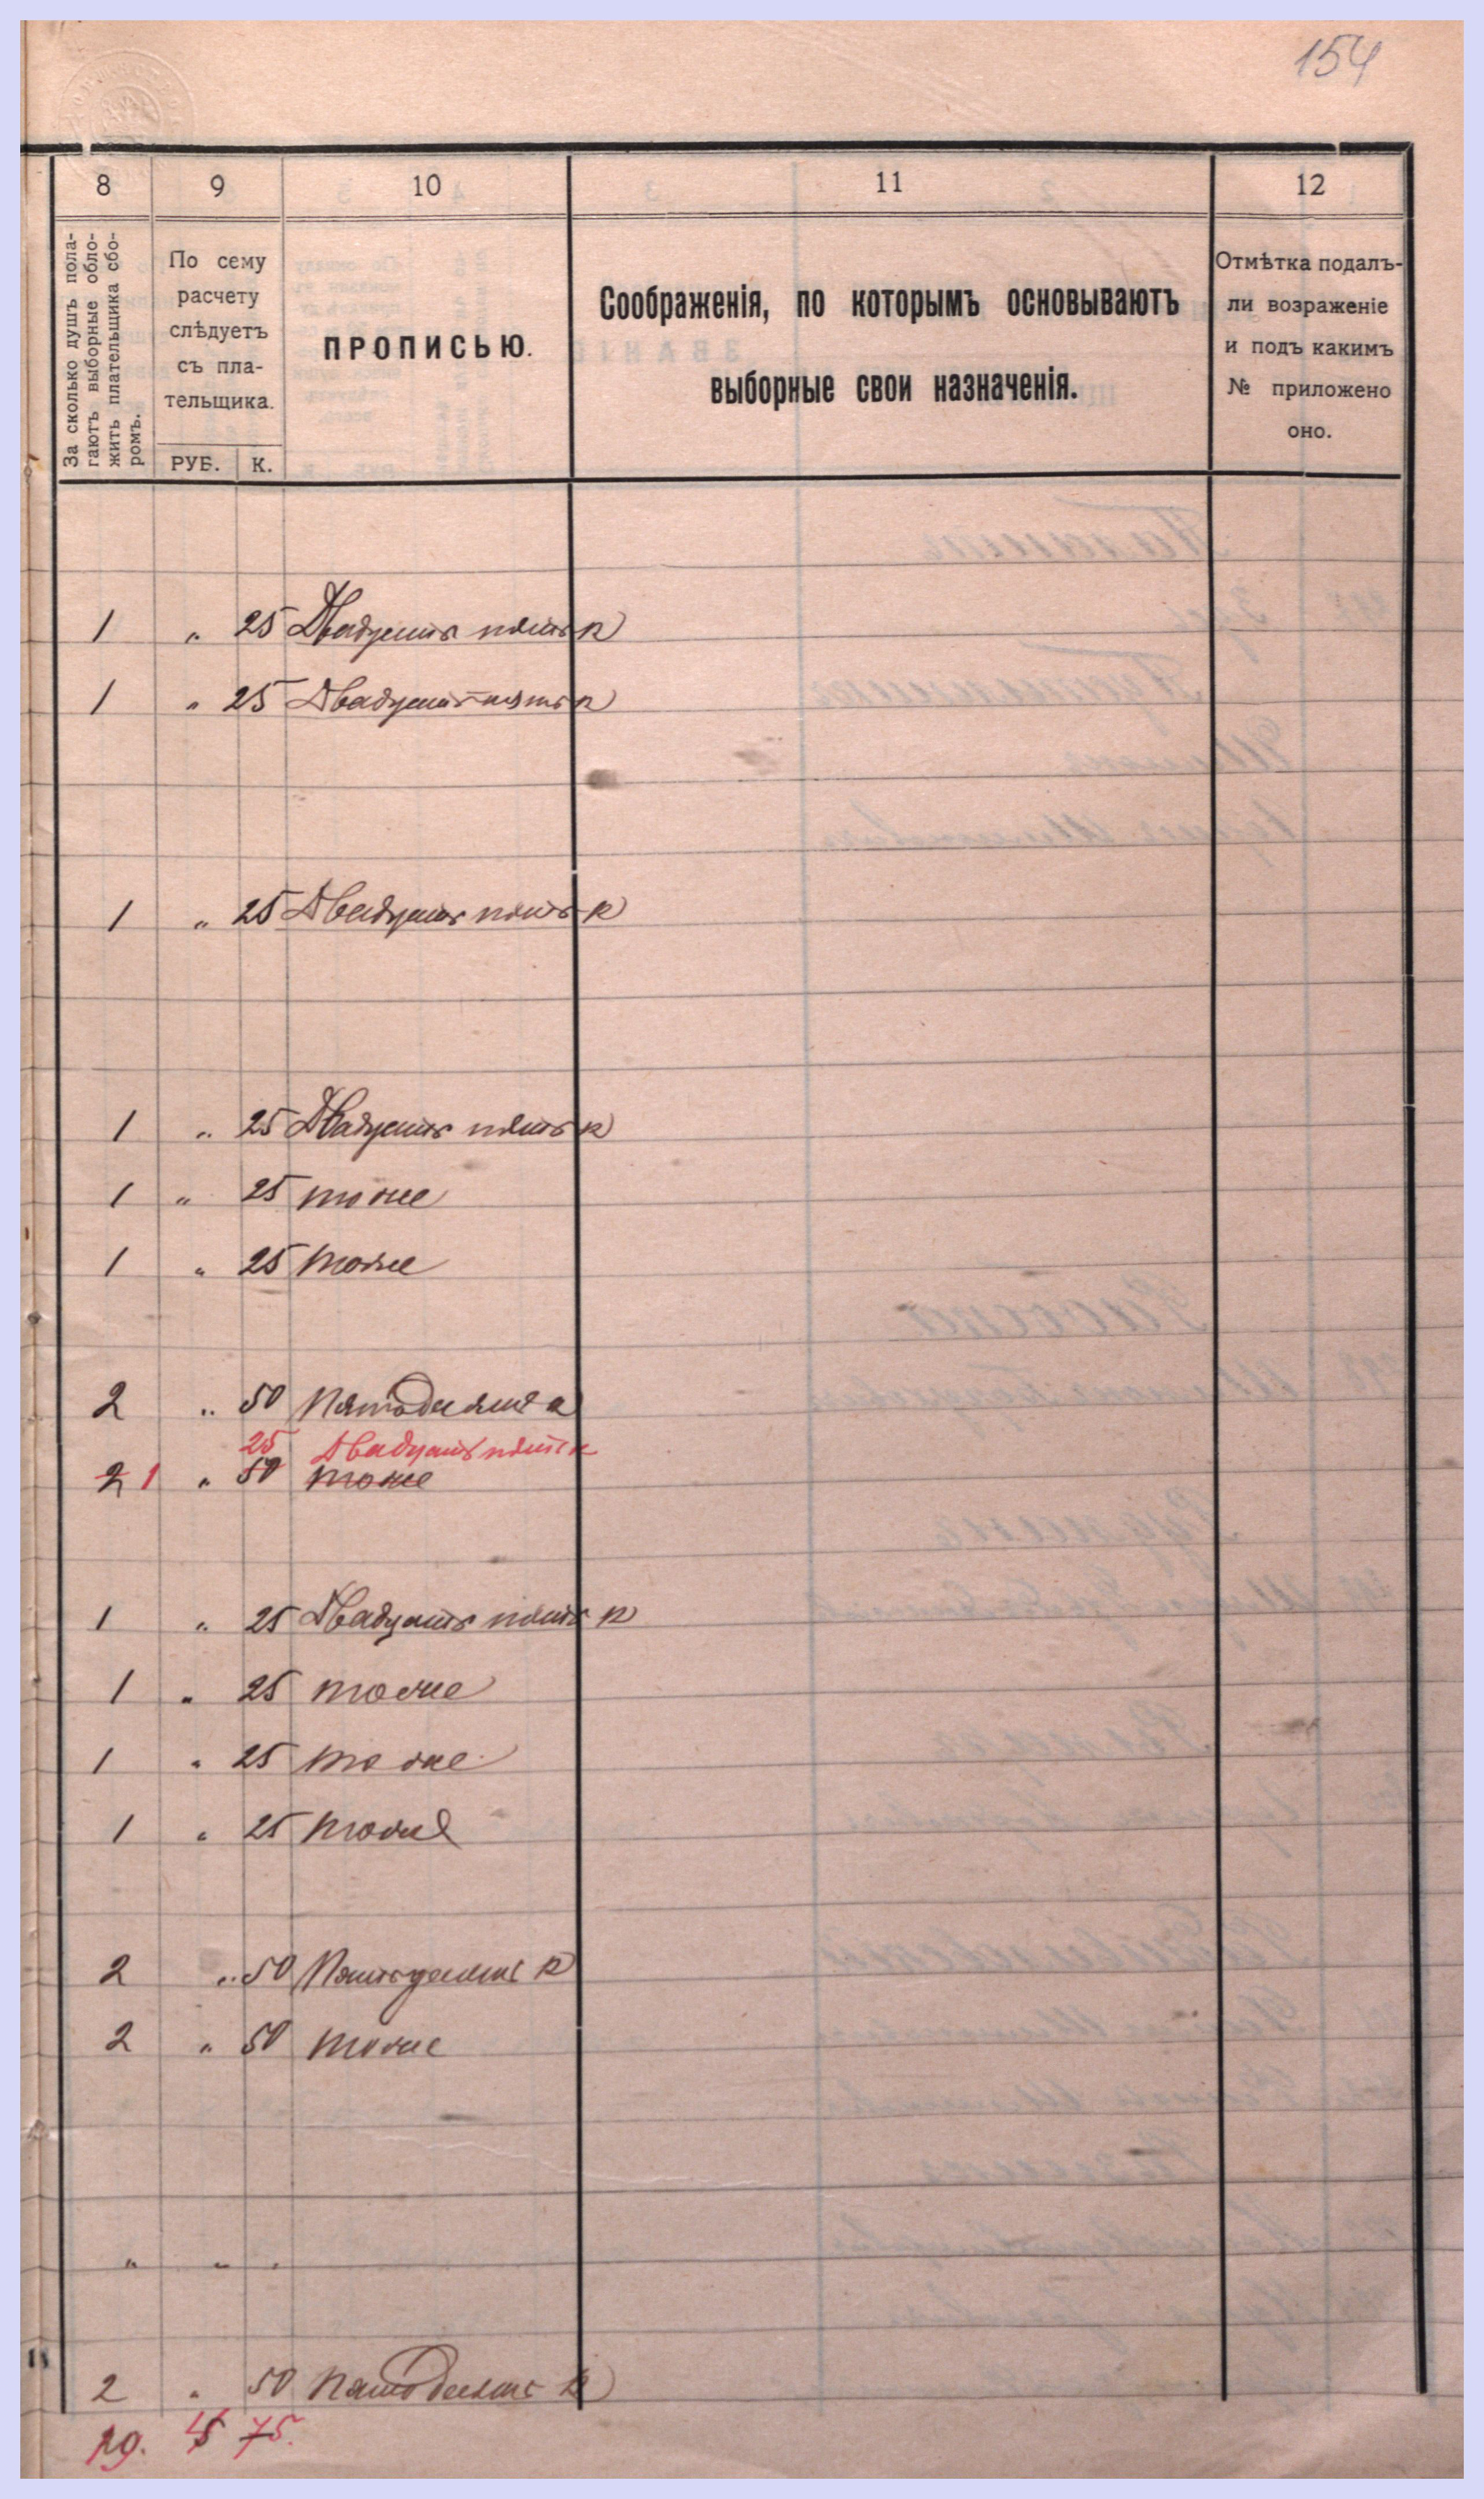 154
8 9 10 11 12
За сколько душъ пола-
гаютъ выборные обло-
жить плательщика сбо-
ромъ.
По сему
расчету
слѣдуетъ
съ пла-
тельщика.
РУБ. К.
ПРОПИСЬЮ.
Соображенія, по которымъ основываютъ
выборные свои назначенія.
Отмѣтка подалъ-
ли возраженіе
и подъ какимъ
№ приложено
оно.
1 " 25 Двадцать пять к
1 " 25 Двадцать пять к
1 " 25 Двадцать пять к
1 " 25 Двадцать пять к
1 " 25 тоже
1 " 25 тоже
2 " 50 Пятьдесятъ к
25 Двадцать пять к
2 1 " 50 тоже
1 " 25 Двадцать пять к
1 " 25 тоже
1 " 25 тоже
1 " 25 тоже
2 " 50 Пятьдесятъ к
2 " 50 тоже
" " "
2 " 50 Пятьдесятъ к
19. 4 75.